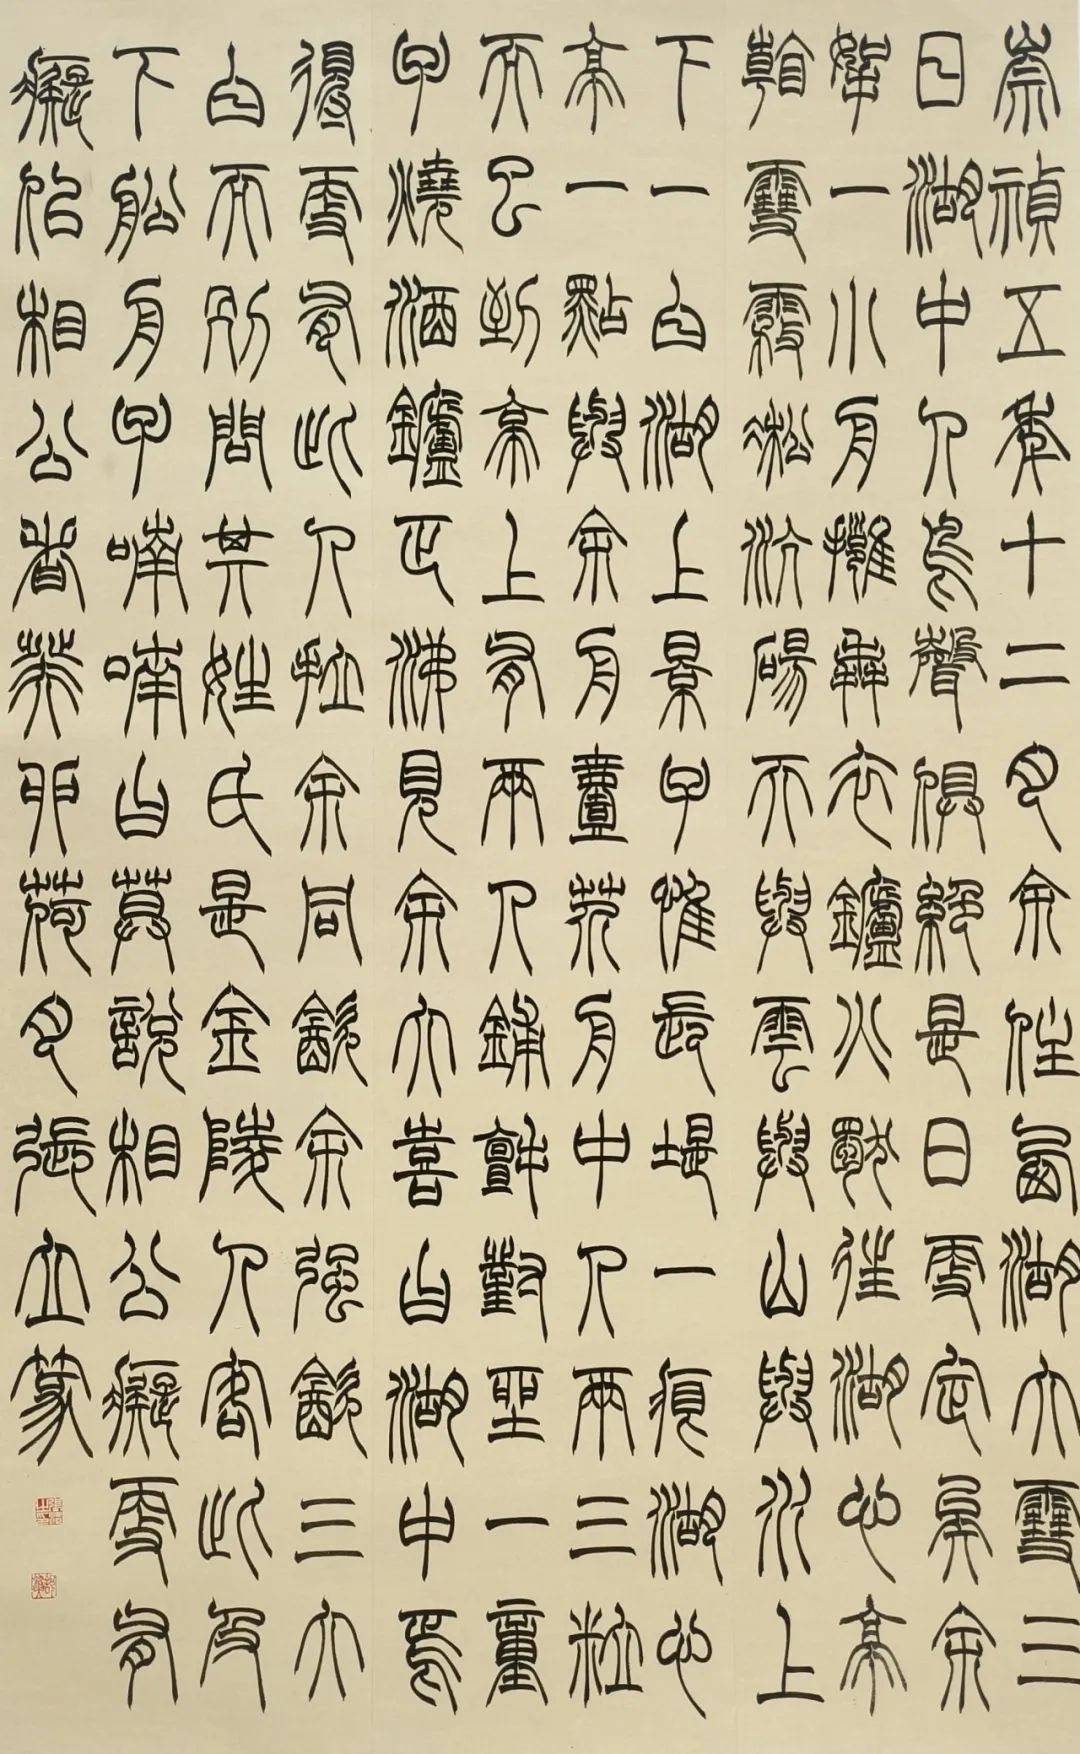 崇禎五年十二月余住西湖大雪三
日湖中人鳥聲俱絕是日更定矣余
拏一小舟擁毳衣鑪火獨往湖心亭
看雪霧凇沆碭天與雲與山與水上
下一白湖上景子惟長堤一痕湖心
亭一點與余舟壹芥舟中人兩三粒
而已到亭上有兩人鋪氈對坐一童
子燒酒鑪正沸見余大喜曰湖中焉
得更有此人拉余同飲余強飲三大
白而別問其姓氏是金陵人客此及
下船舟子喃喃曰莫說相公癡更有
癡佀相公者癸卯荷月張立篆